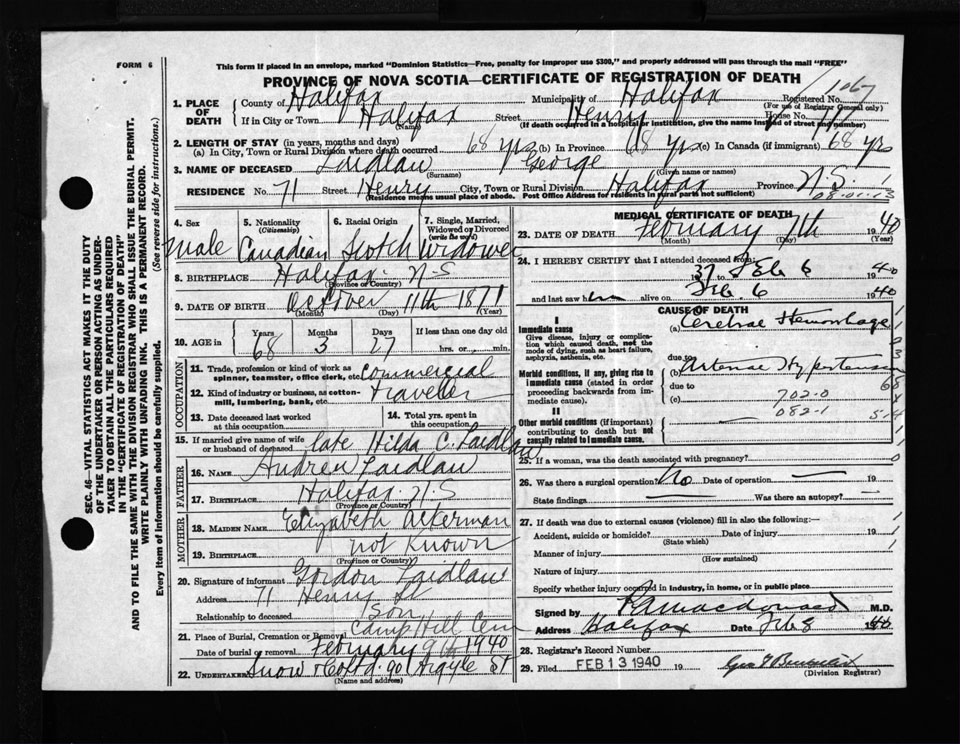 FORM 6
This form if placed in an envelope, marked "Dominion Statistics—Free, penalty for improper use $300," and properly addressed will pass through the mail "FREE"
PROVINCE OF NOVA SCOTIA—CERTIFICATE OF REGISTRATION OF DEATH
1067
1. PLACE OF DEATH
County of Halifax Municipality of Halifax Registered No.
(For use of Registrar General only)
If in City or Town Halifax Street Henry House No. 71
(Name) (If death occurred in a hospital or institution, give the name instead of street and number)
2. LENGTH OF STAY (in years, months and days)
(a) In City, Town or Rural Division where death occurred 68 yrs (b) In Province 68 yrs (c) In Canada (if immigrant) 68 yrs
3. NAME OF DECEASED Laidlaw George
(Surname) (Given names or name)
RESIDENCE No. 71 Street Henry City, Town or Rural Division Halifax Province N.S.
(Residence means usual place of abode. Post Office Address for residents in rural parts not sufficient)
08-01-13
4. Sex
male
5. Nationality (Citizenship)
Canadian
6. Racial Origin
Scotch
7. Single, Married, Widowed or Divorced (write the word)
Widower
8. BIRTHPLACE Halifax N-S
(Province or Country)
9. DATE OF BIRTH October 11th 1871
(Month) (Day) (Year)
10. AGE in Years Months Days If less than one day old
68 3 27 hrs. or min.
OCCUPATION
11. Trade, profession or kind of work as spinner, teamster, office clerk, etc. Commercial
12. Kind of industry or business, as cotton-mill, lumbering, bank, etc. Traveller
13. Date deceased last worked at this occupation
14. Total yrs. spent in this occupation
15. If married give name of wife or husband of deceased late Hilda C. Laidlaw
FATHER
16. NAME Andrew Laidlaw
17. BIRTHPLACE Halifax N-S
(Province or Country)
MOTHER
18. MAIDEN NAME Elizabeth Ackerman
19. BIRTHPLACE not Known
(Province or Country)
20. Signature of informant Gordon Laidlaw
Address 71 Henry St
Relationship to deceased Son
21. Place of Burial, Cremation or Removal Camp Hill Cem
Date of burial or removal February 9th 1940
22. UNDERTAKER Snow & Co Ltd. 90 Argyle St
(Name and address)
MEDICAL CERTIFICATE OF DEATH
23. DATE OF DEATH February 7th 1940
(Month) (Day) (Year)
24. I HEREBY CERTIFY that I attended deceased from:
1937 Feb 6 1940
and last saw him alive on Feb. 6 1940
CAUSE OF DEATH
I
Immediate cause
Give disease, injury or complication which caused death, not the mode of dying, such as heart failure, asphyxia, asthenia, etc.
(a) Cerebral Hemorrhage
due to
Morbid conditions, if any, giving rise to immediate cause (stated in order proceeding backwards from immediate cause).
(b) Arterial Hypertension
due to
(c) 702-0
082-1
II
Other morbid conditions (if important) contributing to death but not causally related to immediate cause.
25. If a woman, was the death associated with pregnancy?
26. Was there a surgical operation? No Date of operation 19
State findings Was there an autopsy?
27. If death was due to external causes (violence) fill in also the following:—
Accident, suicide or homicide? Date of injury 19
(State which)
Manner of injury
(How sustained)
Nature of injury
Specify whether injury occurred in industry, in home, or in public place
Signed by Macdonald M.D.
Address Halifax Date Feb 8 1940
28. Registrar's Record Number
29. Filed FEB 13 1940 19
(Division Registrar)
SEC. 46—VITAL STATISTICS ACT MAKES IT THE DUTY OF THE UNDERTAKER OR PERSON ACTING AS UNDERTAKER TO OBTAIN ALL THE PARTICULARS REQUIRED IN THE "CERTIFICATE OF REGISTRATION OF DEATH" AND TO FILE THE SAME WITH THE DIVISION REGISTRAR WHO SHALL ISSUE THE BURIAL PERMIT.
WRITE PLAINLY WITH UNFADING INK. THIS IS A PERMANENT RECORD.
Every item of information should be carefully supplied. (See reverse side for instructions.)